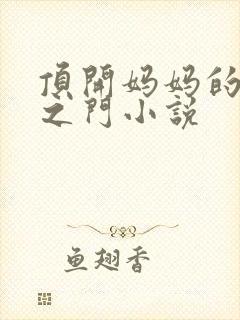 頂開妈妈的
之門小説
鱼翅香